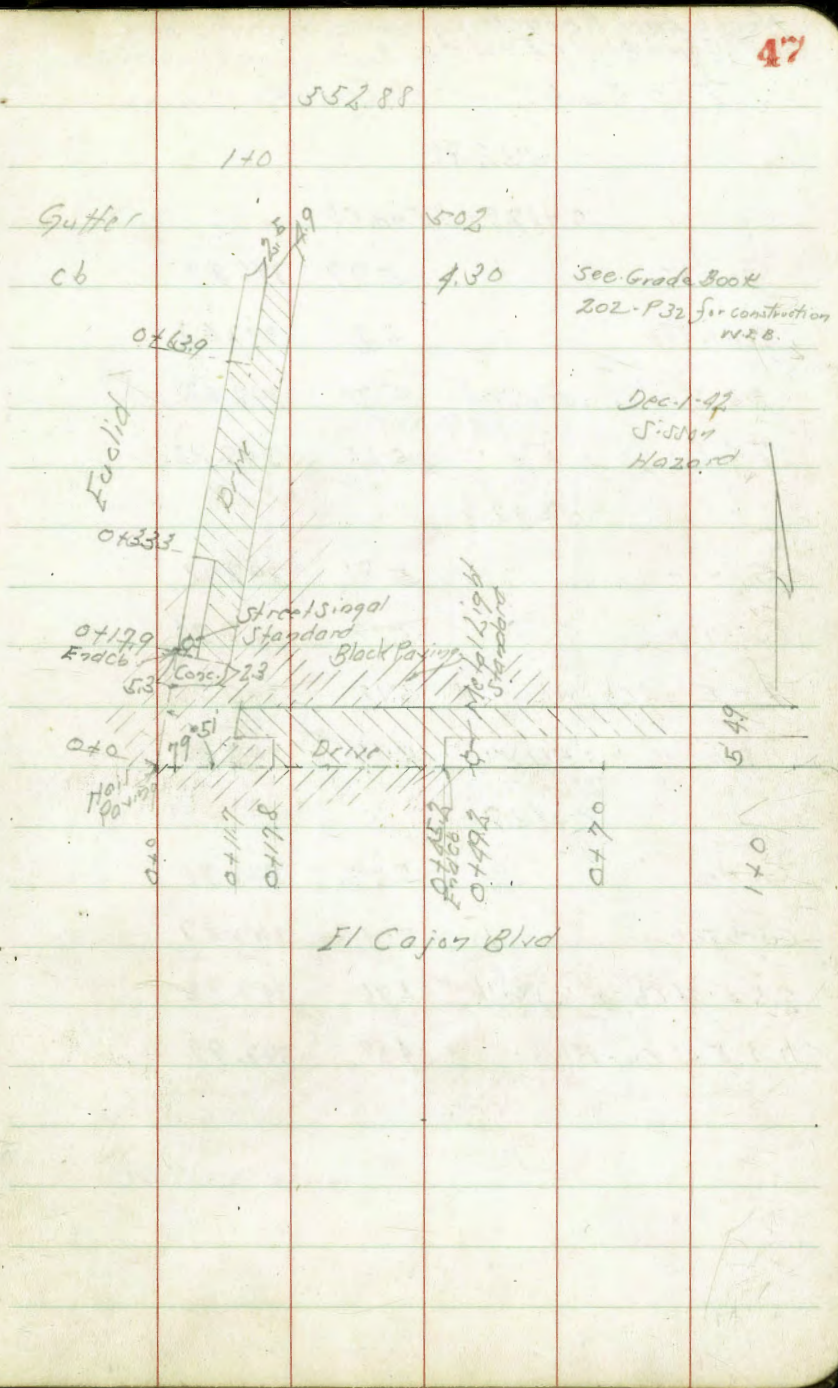 47
352.88
1+0
Gutter 502
2.5 4.9
cb 4.30 See Grade Book
202-P32 for construction
W.E.B.
0+63.9
Dec-1-42
Sisson
Hazard
Euclid
Drive
0+33.3
Street Singal
Standard
0+17.9
End cb
Black Paving
Metal Light
Standard
Conc. 23
5.3
79°51'
0+0
Drive
5 49
Paving
0+0
0+11.7
0+17.8
0+45.2
End cb
0+49.2
0+70
1+0
El Cajon Blvd